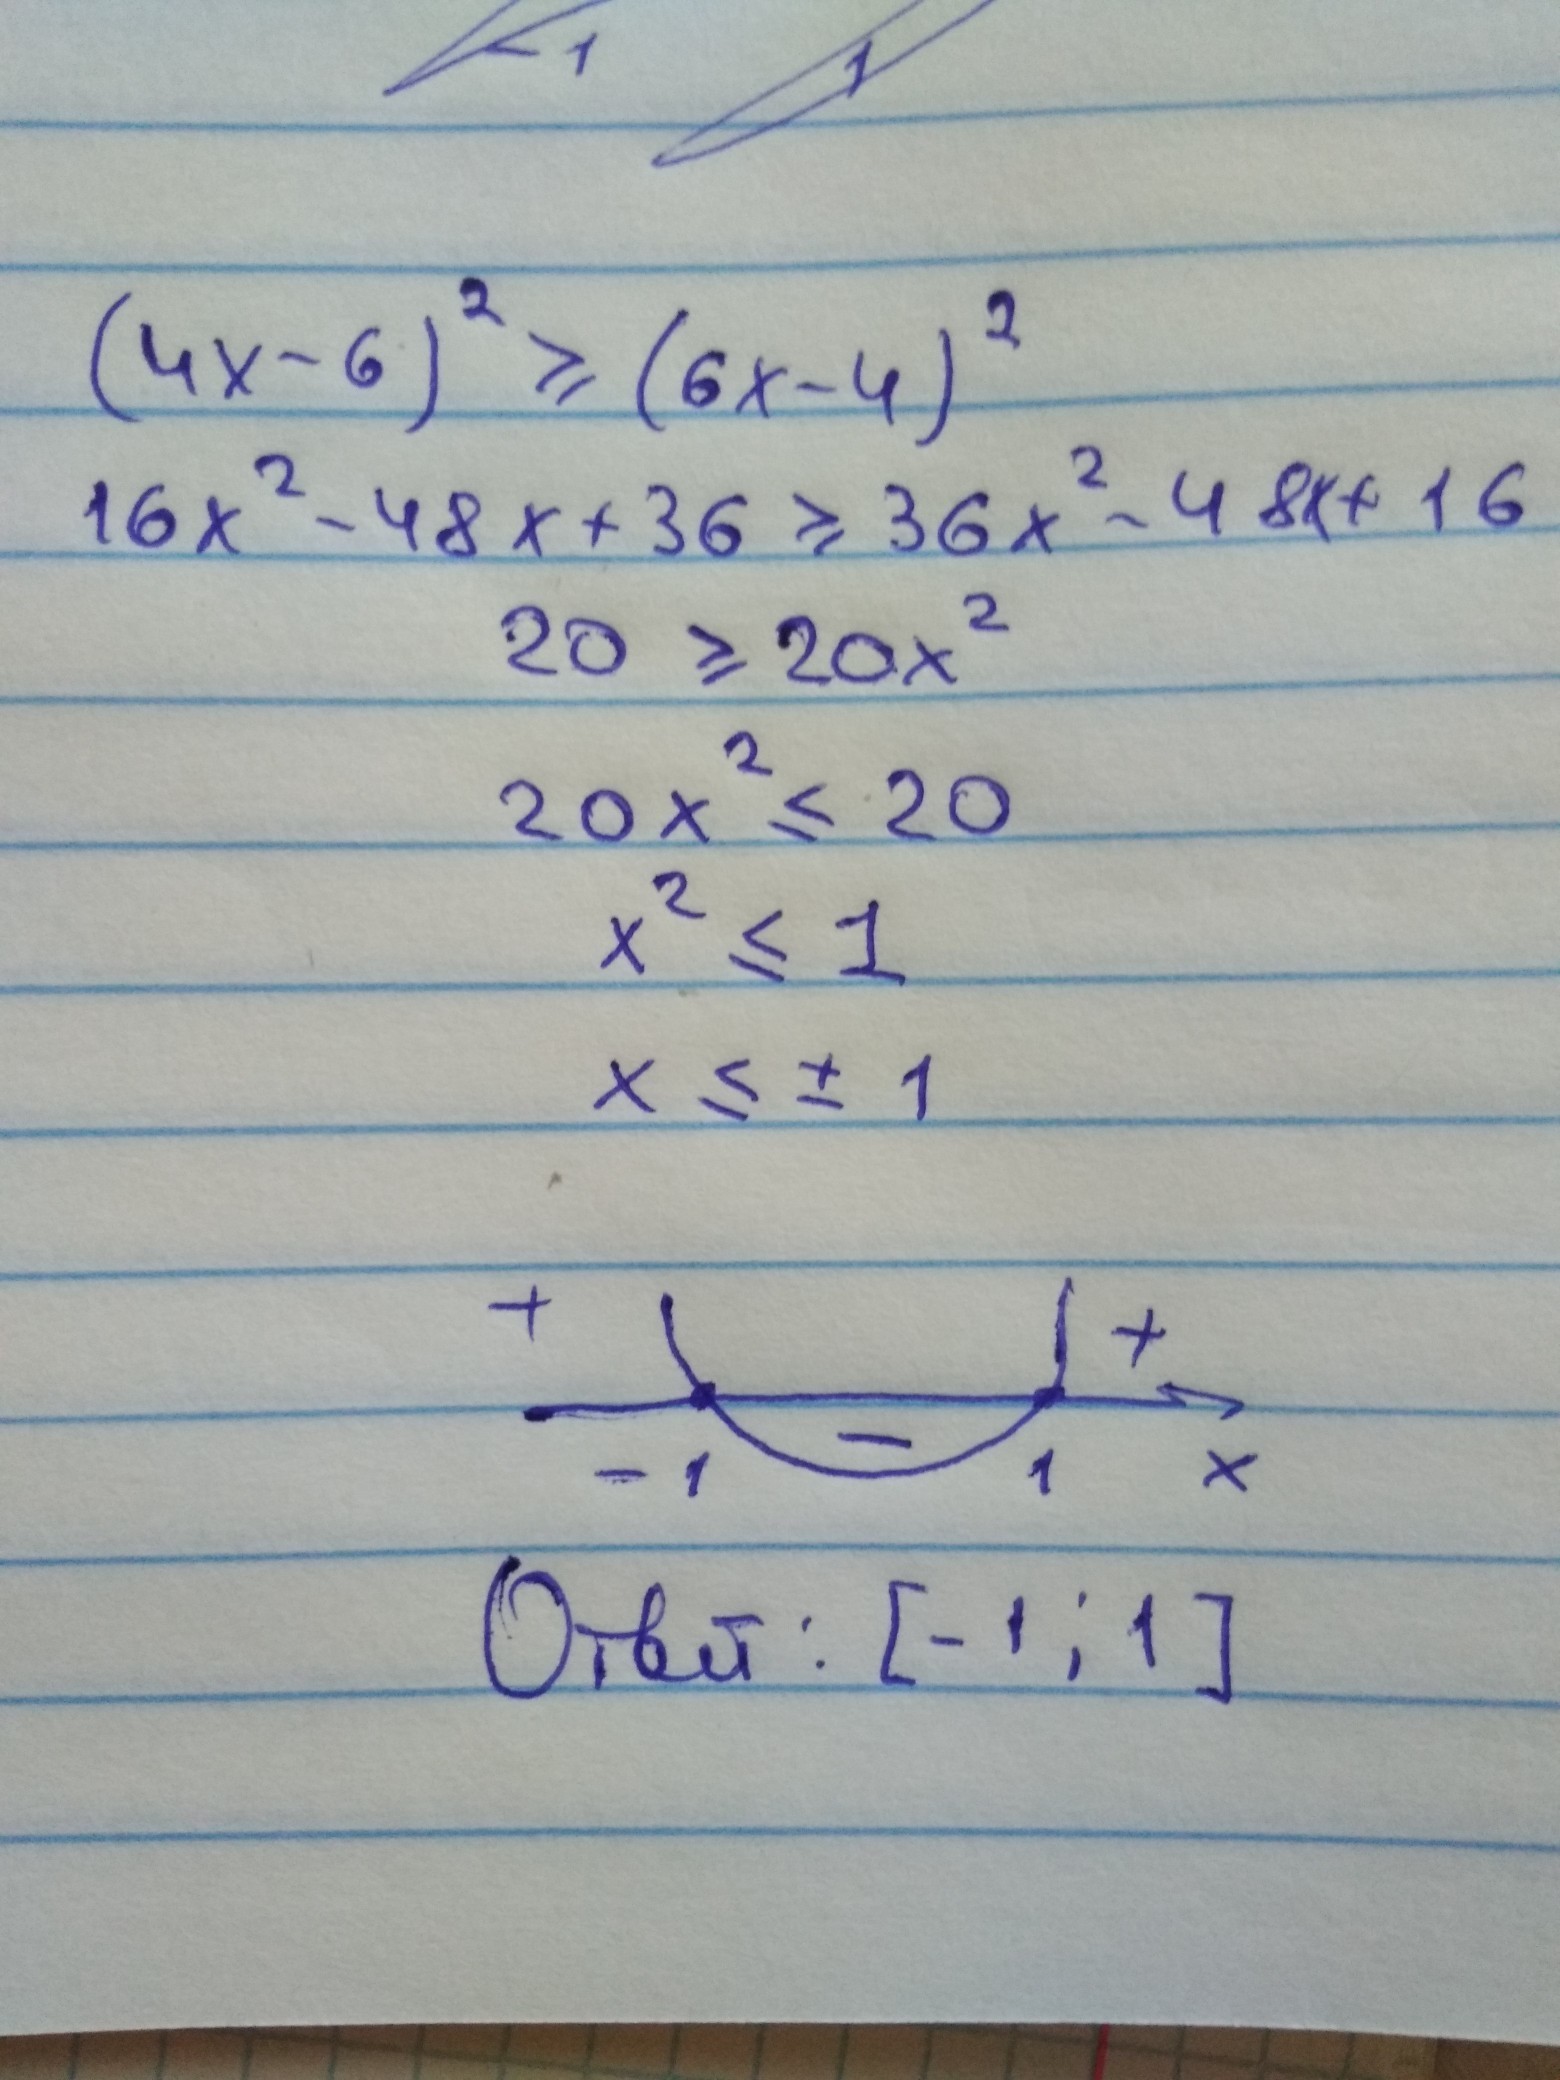 -1 1
(4x-6)² ≥ (6x-4)²
16x²-48x+36 ≥ 36x²-48x+16
20 ≥ 20x²
20x² ≤ 20
x² ≤ 1
x ≤ ± 1
+ +
−
-1 1 x
Ответ: [-1; 1]